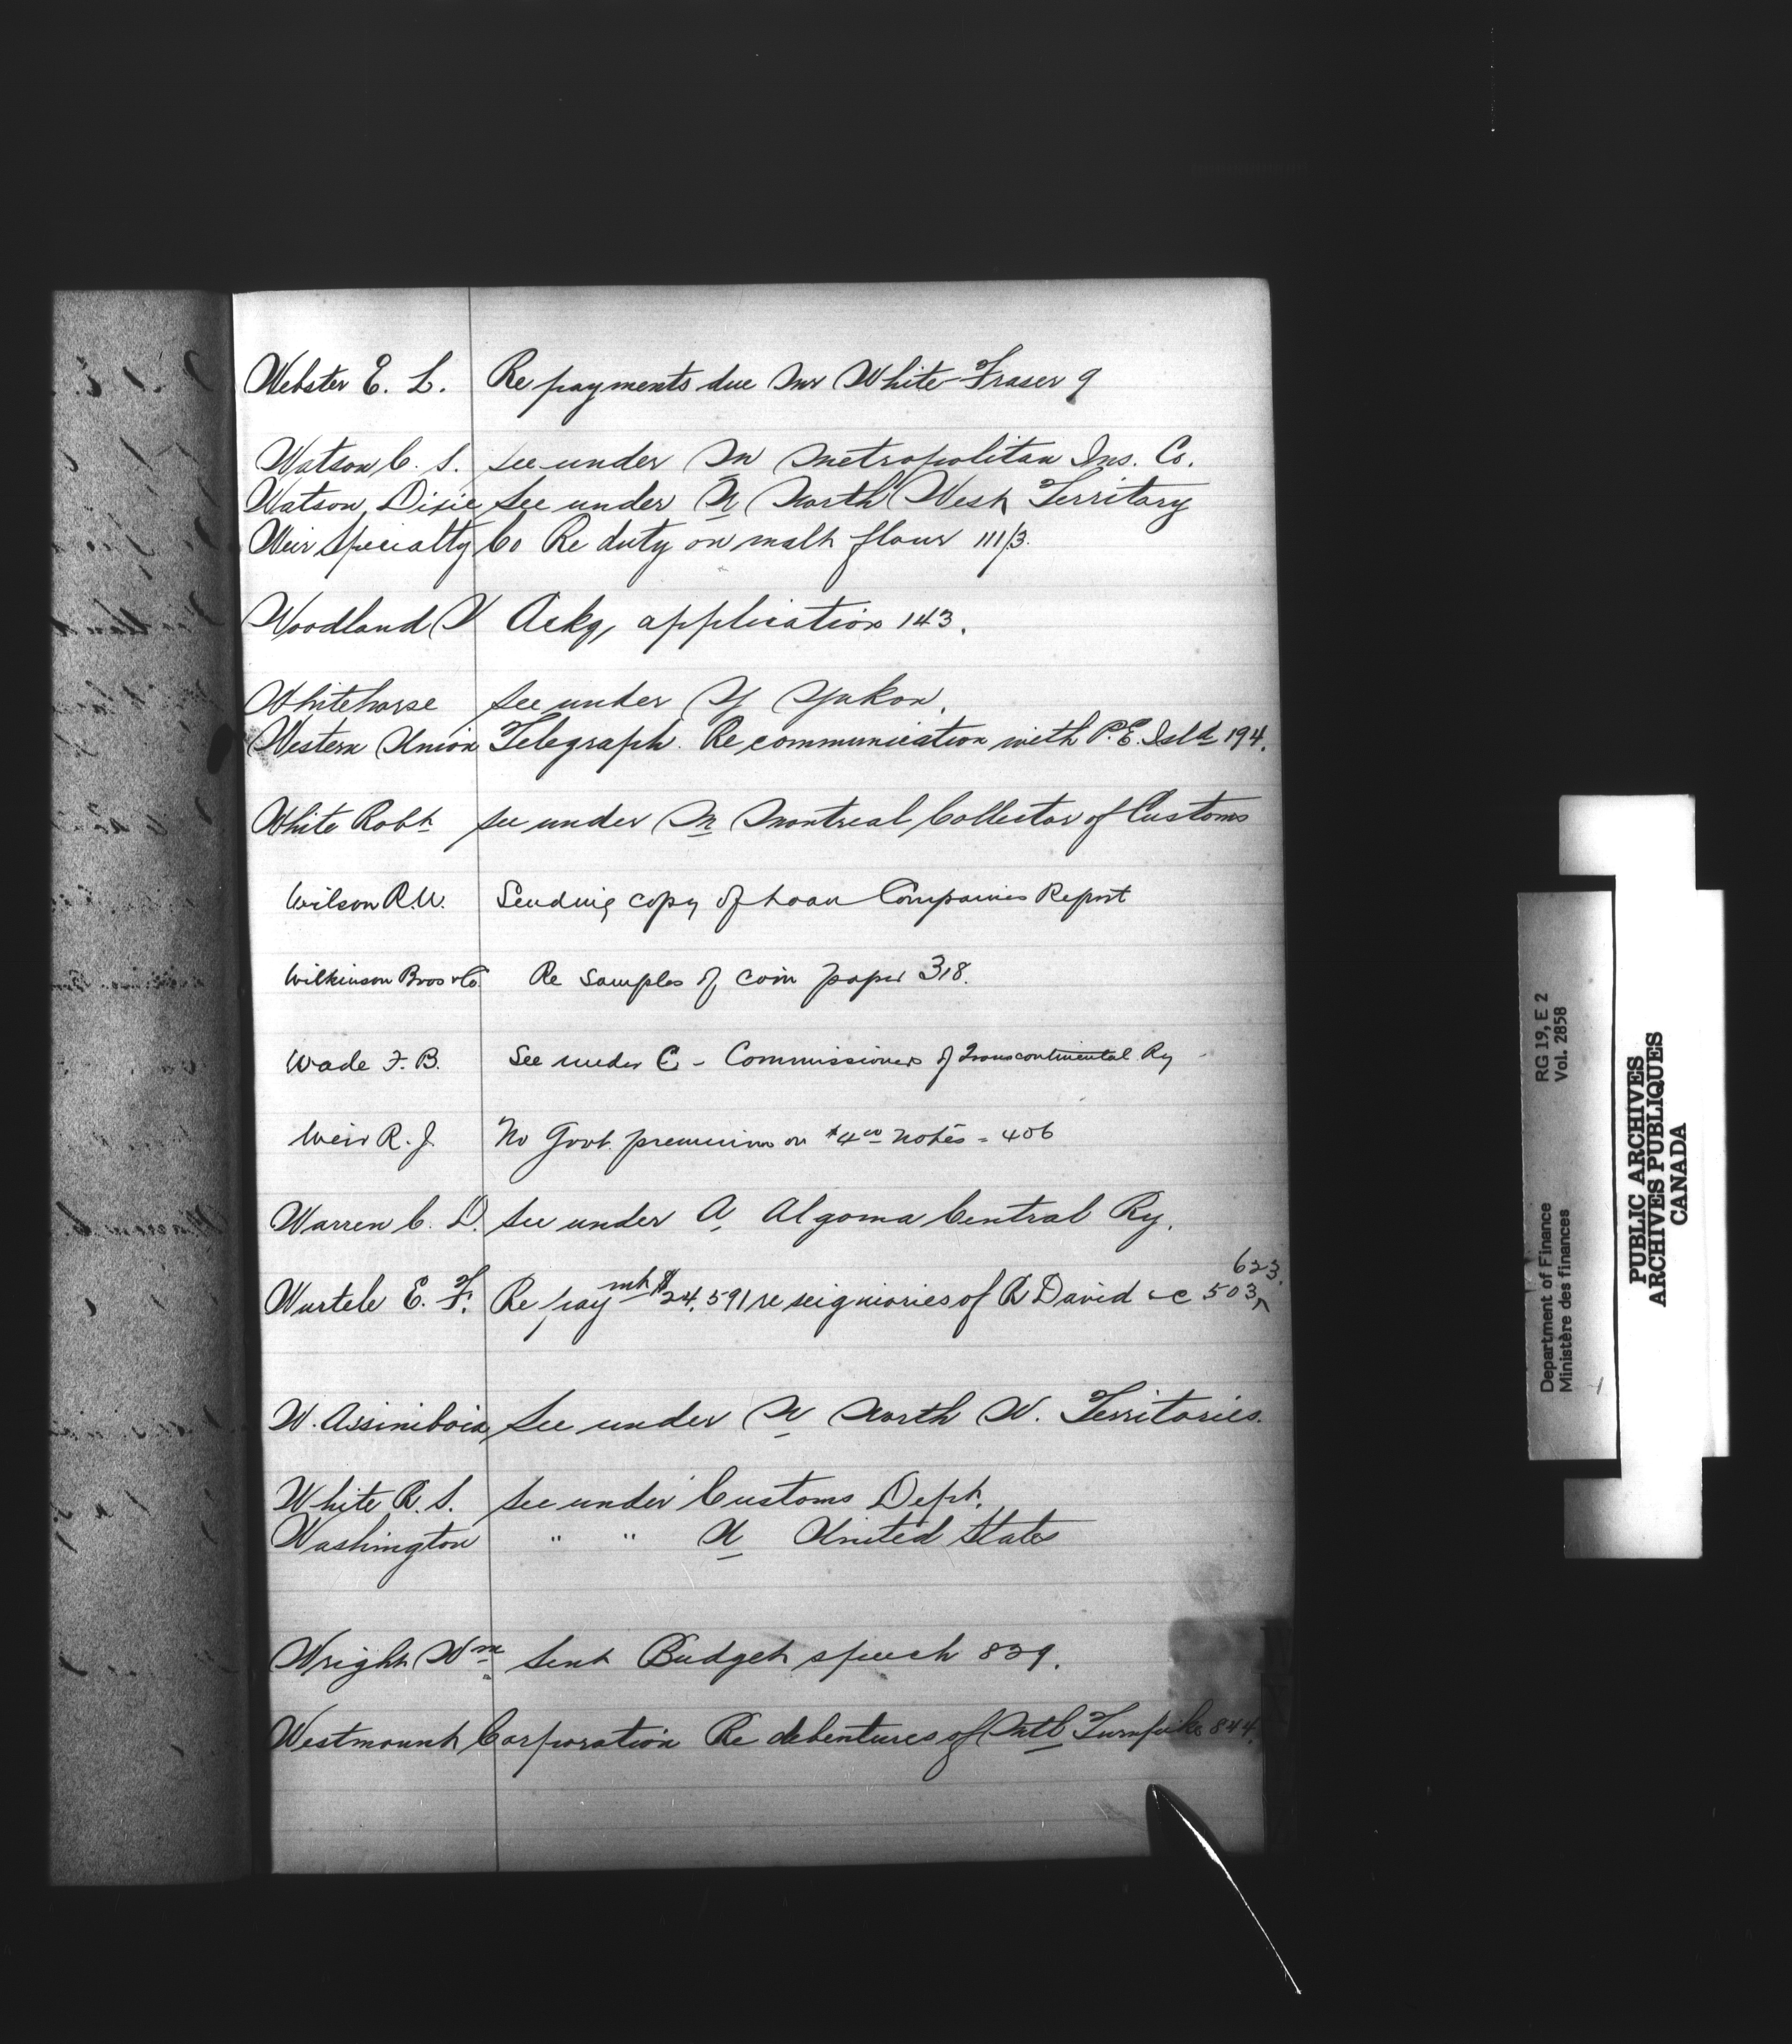 Webster E. L. Re payments due Mr White-Fraser 9
Watson C. S. See under M Metropolitan Ins. Co.
Watson, Dixie See under N North West Territory
Weir Specialty Co Re duty on malt flour 111/3.
Woodland V Ackg, application 143.
Whitehorse See under Y Yukon.
Western Union Telegraph. Re communication with P.E. Isld 194.
White Robt see under M Montreal Collector of Customs
Wilson R.W. Sending copy of Loan Companies Report
Wilkinson Bros & Co. Re samples of coin paper 318.
Wade F. B. See under C - Commissioners of Transcontinental Ry
Weir R. J. No Govt. premium on $4.00 notes - 406
Warren C. D. See under A Algoma Central Ry.
623.
Wurtele E. F. Re paymt $24,591 re seigniories of R David &c 503
W. Assiniboia, See under N North W. Territories.
White R. S. See under Customs Dept.
Washington " " U United States
Wright Wm Sent Budget speech 839.
Westmount Corporation Re debentures of Mtl Turnpike 844.
RG 19, E 2
Vol. 2858
Department of Finance
Ministère des finances
PUBLIC ARCHIVES
ARCHIVES PUBLIQUES
CANADA